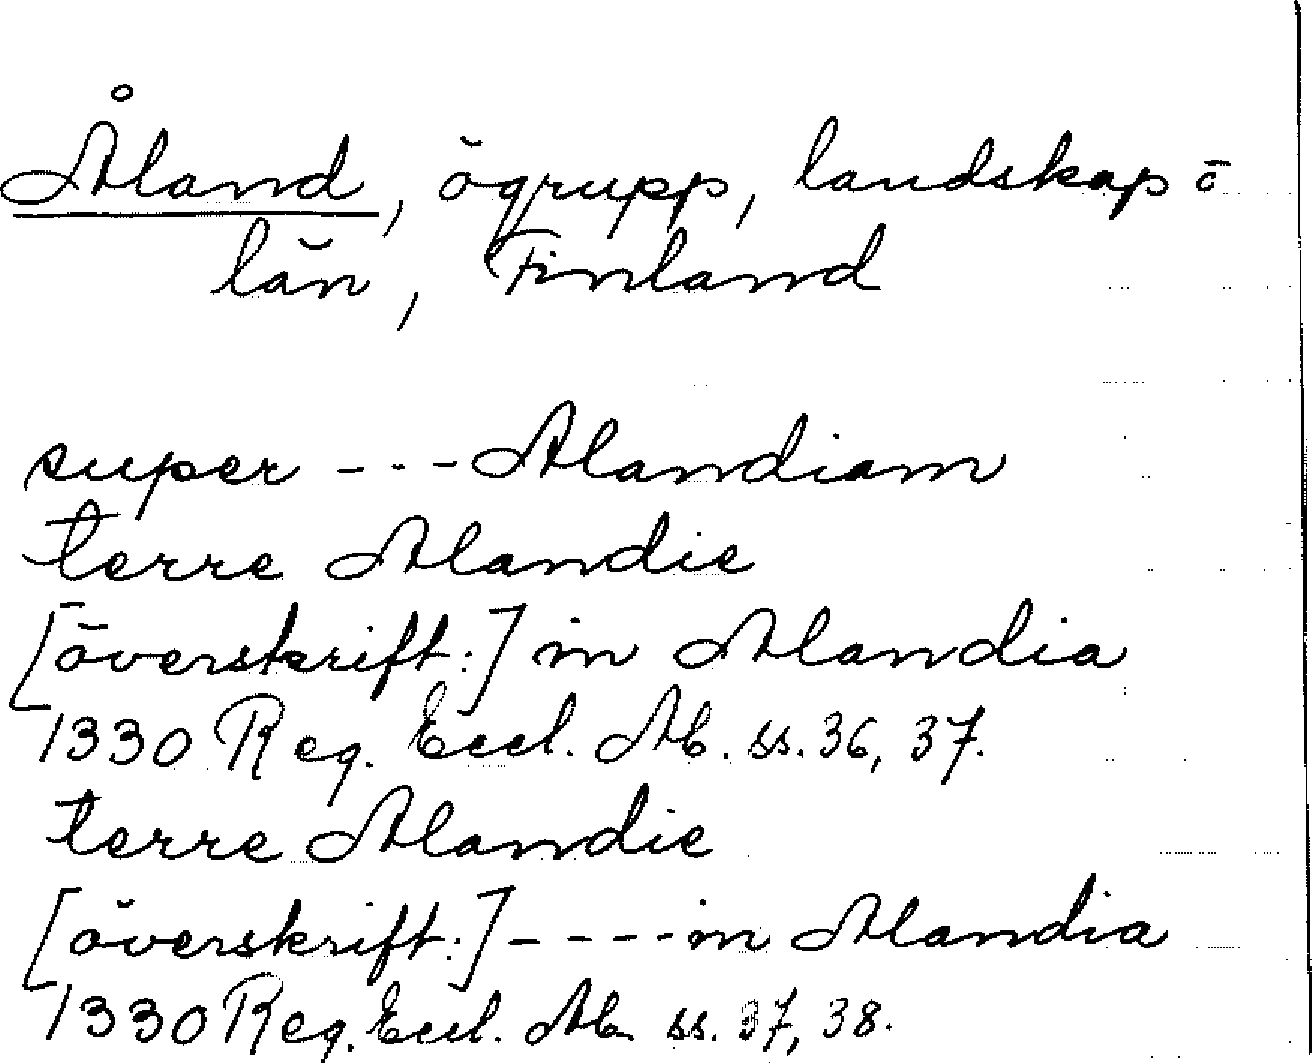 Åland, ögrupp, landskap o
län, Finland
super --- Alandiam
terre Alandie
[överskrift:] in Alandia
1330 Reg. Eccl. Ab. ss. 36, 37.
terre Alandie
[överskrift:] ---- in Alandia
1330 Reg. Eccl. Ab. ss. 37, 38.